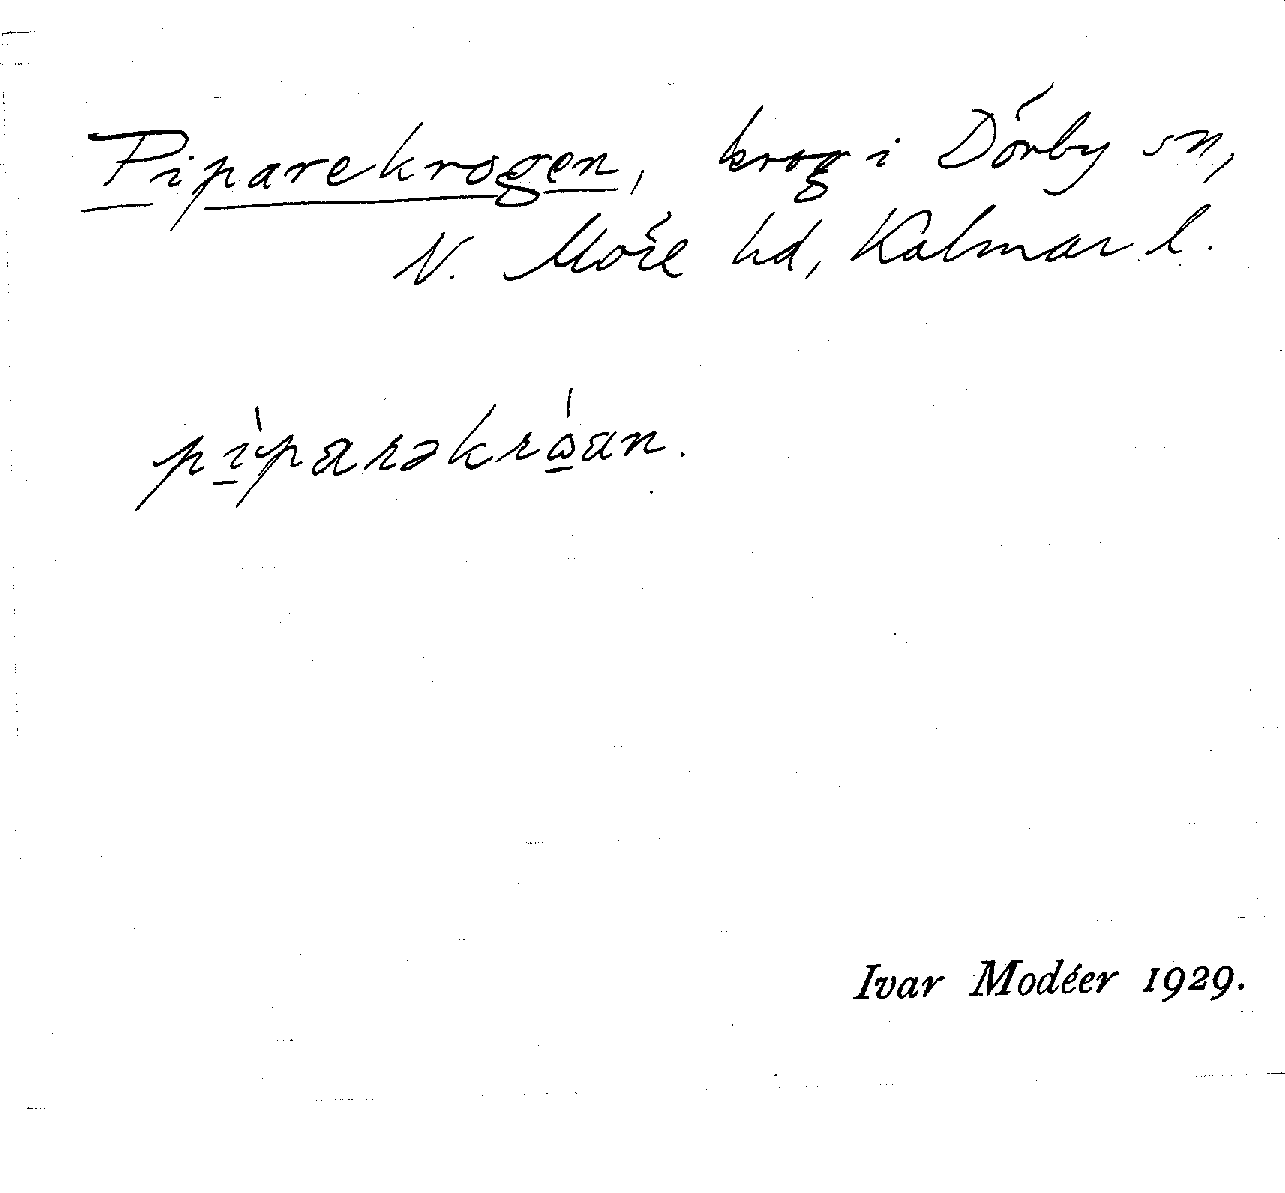 Piparekrogen, krog i Dörby sn,
N. Möre hd, Kalmar l.
pì̲parəkrώ̲an.
Ivar Modéer 1929.